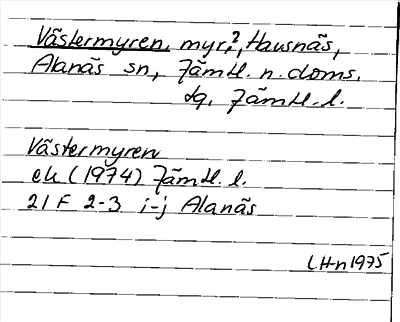 Västermyren, myr, i ?, Hausnäs,
Alanäs sn, Jämtl. n. doms.
dg, Jämtl. l.
Västermyren
ek (1974) Jämtl. l.
21 F 2-3 i-j Alanäs
LHn 1975